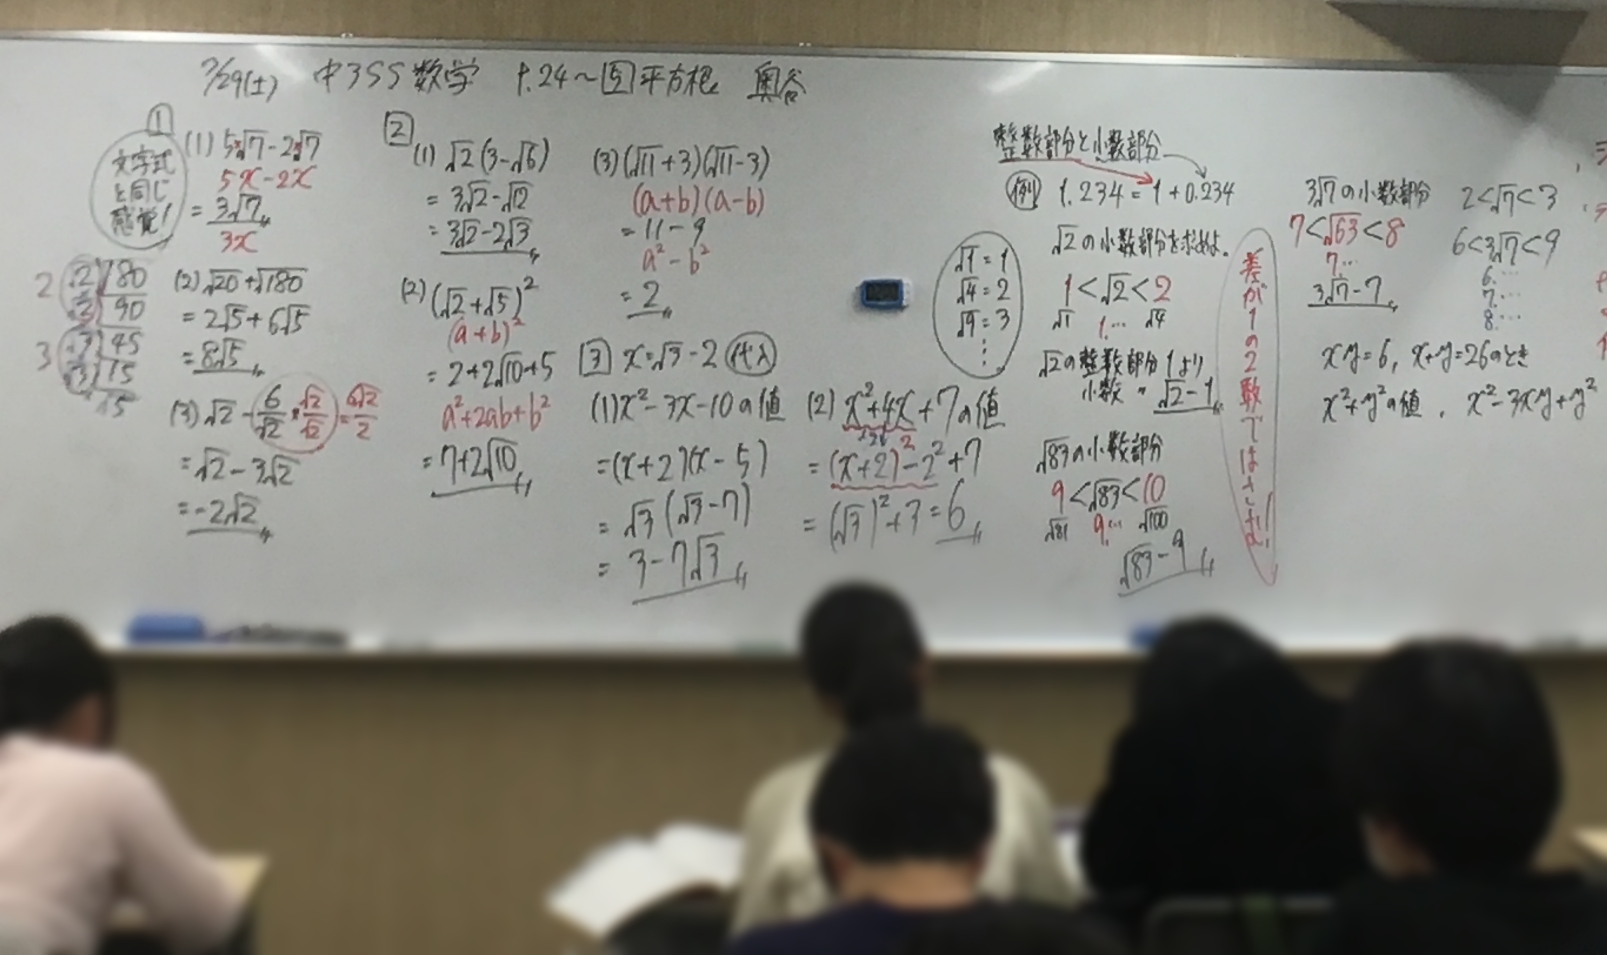 7/29(土) 中3SS 数学 P.24〜回平方根 奥谷
1
文字式
と同じ
感覚!
(1) 5√7-2√7
5x-2x
= 3√7
3x
2)180
2)90
3)45
3)15
5
2
3
(2) √20+√180
= 2√5+6√5
= 8√5
(3) √2 - 6/√2 × √2/√2 = 6√2/2
= √2-3√2
= -2√2
2
(1) √2(3-√6)
= 3√2-√12
= 3√2-2√3
(2) (√2+√5)²
(a+b)²
= 2+2√10+5
a²+2ab+b²
= 7+2√10
(3) (√11+3)(√11-3)
(a+b)(a-b)
= 11-9
a²-b²
= 2
3 x=√3-2 代入
(1) x²-3x-10の値
= (x+2)(x-5)
= √3(√3-7)
= 3-7√3
(2) x²+4x+7の値
= (x+2)²-2²+7
= (√3)²+3=6
整数部分と小数部分
例 1.234=1+0.234
√1=1
√4=2
√9=3
⋮
√2の小数部分を求めよ。
1<√2<2
√1 1… √4
√2の整数部分1より
小数 〃 √2-1
√83の小数部分
9<√83<10
√81 9… √100
√83-9
差が1の2数ではさむ!
3√7の小数部分
7<√63<8
7…
3√7-7
2<√7<3
6<3√7<9
6.…
7.…
8.…
xy=6, x+y=26のとき
x²+y²の値, x²-3xy+y²